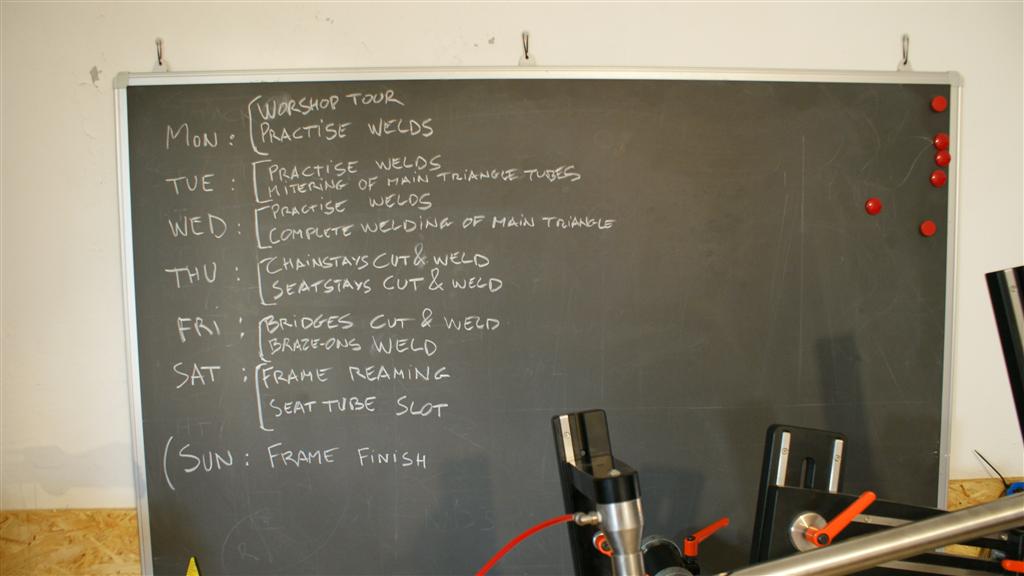 MON: WORSHOP TOUR
PRACTISE WELDS
TUE: PRACTISE WELDS
MITERING OF MAIN TRIANGLE TUBES
WED: PRACTISE WELDS
COMPLETE WELDING OF MAIN TRIANGLE
THU: CHAINSTAYS CUT & WELD
SEATSTAYS CUT & WELD
FRI: BRIDGES CUT & WELD
BRAZE-ONS WELD
SAT: FRAME REAMING
SEAT TUBE SLOT
(SUN: FRAME FINISH